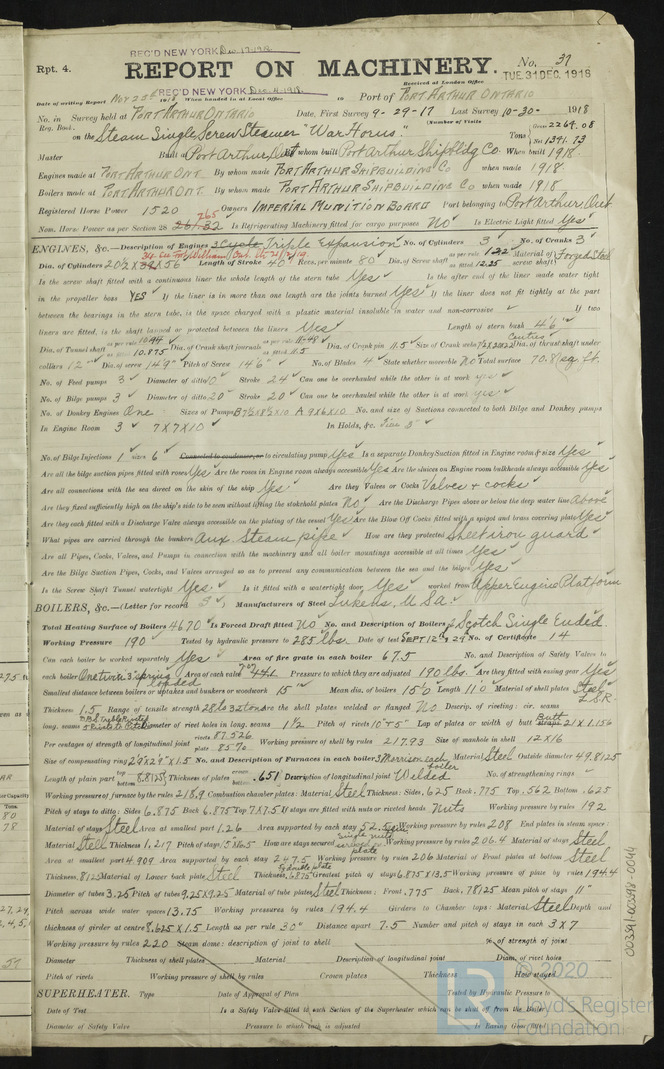 REC'D NEW YORK Dec. 17-1918
Rpt. 4.
REPORT ON MACHINERY.
No. 37
TUE. 31 DEC. 1918
Received at London Office
REC'D NEW YORK Dec. 4. 1918
Date of writing Report Nov 25th 1918 When handed in at Local Office 19 Port of PORT ARTHUR ONTARIO
No. in Survey held at PORT ARTHUR ONTARIO Date, First Survey 9-29-17 Last Survey 10-30- 1918
Reg. Book. (Number of Visits
on the Steam Single Screw Steamer "War Horus" Tons Gross 2264.08 Net 1391.73
Master Built at Port Arthur, Ont By whom built Port Arthur Shipbldg Co. When built 1918.
Engines made at PORT ARTHUR ONT. By whom made PORT ARTHUR SHIPBUILDING Co when made 1918.
Boilers made at PORT ARTHUR ONT. By whom made PORT ARTHUR SHIPBUILDING Co when made 1918
Registered Horse Power 1520 Owners IMPERIAL MUNITION BOARD Port belonging to Port Arthur Ont
Nom. Horse Power as per Section 28 265 Is Refrigerating Machinery fitted for cargo purposes NO Is Electric Light fitted Yes
ENGINES, &c.—Description of Engines 3 Cycle, Triple Expansion No. of Cylinders 3 No. of Cranks 3
Dia. of Cylinders 20½ X X 56 Length of Stroke 40" Revs. per minute 80 Dia. of Screw shaft as per rule as fitted 12.25 Material of screw shaft Forged Steel
Is the screw shaft fitted with a continuous liner the whole length of the stern tube Yes Is the after end of the liner made water tight
in the propeller boss YES If the liner is in more than one length are the joints burned Yes If the liner does not fit tightly at the part
between the bearings in the stern tube, is the space charged with a plastic material insoluble in water and non-corrosive If two
liners are fitted, is the shaft lapped or protected between the liners Yes Length of stern bush 4'6"
Dia. of Tunnel shaft as per rule 10.44 as fitted 10.875 Dia. of Crank shaft journals as per rule 11.48 as fitted 11.5 Dia. of Crank pin 11.5 Size of Crank webs Dia. of thrust shaft under
collars 12" Dia. of screw 14'9" Pitch of Screw 14'6" No. of Blades 4 State whether moveable NO Total surface 70.8 sq. ft.
No. of Feed pumps 3 Diameter of ditto 10" Stroke 24" Can one be overhauled while the other is at work yes
No. of Bilge pumps 3 Diameter of ditto 20" Stroke 20" Can one be overhauled while the other is at work yes
No. of Donkey Engines One Sizes of Pumps B 7½x8½x10 A 9x6x10 No. and size of Suctions connected to both Bilge and Donkey pumps
In Engine Room 3 7X7X10 In Holds, &c. 3"
No. of Bilge Injections 1 sizes 6 Connected to condenser, or to circulating pump Yes Is a separate Donkey Suction fitted in Engine room & size Yes
Are all the bilge suction pipes fitted with roses Yes Are the roses in Engine room always accessible Yes Are the sluices on Engine room bulkheads always accessible Yes
Are all connections with the sea direct on the skin of the ship Yes Are they Valves or Cocks Valves + cocks
Are they fixed sufficiently high on the ship's side to be seen without lifting the stokehold plates No Are the Discharge Pipes above or below the deep water line Above
Are they each fitted with a Discharge Valve always accessible on the plating of the vessel Yes Are the Blow Off Cocks fitted with a spigot and brass covering plate Yes
What pipes are carried through the bunkers aux. Steam pipe How are they protected Sheet iron guard
Are all Pipes, Cocks, Valves, and Pumps in connection with the machinery and all boiler mountings accessible at all times Yes
Are the Bilge Suction Pipes, Cocks, and Valves arranged so as to prevent any communication between the sea and the bilges Yes
Is the Screw Shaft Tunnel watertight Yes Is it fitted with a watertight door Yes worked from Upper Engine Platform
BOILERS, &c.—(Letter for record S) Manufacturers of Steel Lukens, U.S.A.
Total Heating Surface of Boilers 4670 Is Forced Draft fitted NO No. and Description of Boilers 2 Scotch Single Ended
Working Pressure 190 Tested by hydraulic pressure to 285 lbs. Date of test SEPT 12th & 24 No. of Certificate 14
Can each boiler be worked separately Yes Area of fire grate in each boiler 67.5 No. and Description of Safety Valves to
each boiler One twin 3" spring loaded Area of each valve 7.07 Pressure to which they are adjusted 190 lbs. Are they fitted with easing gear Yes
Smallest distance between boilers or uptakes and bunkers or woodwork 15" Mean dia. of boilers 15'0 Length 11'0 Material of shell plates Steel
Thickness 1.5 Range of tensile strength 28 to 32 tons Are the shell plates welded or flanged NO Descrip. of riveting: cir. seams
long. seams Diameter of rivet holes in long. seams 1½ Pitch of rivets 10"+5" Lap of plates or width of butt straps 21 X 1.156
Per centages of strength of longitudinal joint rivets 87.526 plate 85.70 Working pressure of shell by rules 217.93 Size of manhole in shell 12 X 16
Size of compensating ring 29X29"X1.5 No. and Description of Furnaces in each boiler 3 Morrison each boiler Material Steel Outside diameter 49.8125
Length of plain part top bottom 8.8125 Thickness of plates crown bottom .651 Description of longitudinal joint Welded No. of strengthening rings
Working pressure of furnace by the rules 218.9 Combustion chamber plates: Material Steel Thickness: Sides .625 Back .775 Top .562 Bottom .625
Pitch of stays to ditto: Sides 6.875 Back 6.875 Top 7X7.5 If stays are fitted with nuts or riveted heads Nuts Working pressure by rules 192
Material of stays Steel Area at smallest part 1.26 Area supported by each stay 52.5 Working pressure by rules 208 End plates in steam space:
Material Steel Thickness 1.217 Pitch of stays How are stays secured Working pressure by rules 206.4 Material of stays Steel
Area at smallest part 4.909 Area supported by each stay 247.5 Working pressure by rules 206 Material of Front plates at bottom Steel
Thickness .8125 Material of Lower back plate Steel Thickness .6875 Greatest pitch of stays 6.875X13.5 Working pressure of plate by rules 194.4
Diameter of tubes 3.25 Pitch of tubes 9.25X9.25 Material of tube plates Steel Thickness: Front .775 Back .78125 Mean pitch of stays 11"
Pitch across wide water spaces 13.75 Working pressures by rules 194.4 Girders to Chamber tops: Material Steel Depth and
thickness of girder at centre 8.625 X 1.5 Length as per rule 30" Distance apart 7.5 Number and pitch of stays in each 3 X 7
Working pressure by rules 220 Steam dome: description of joint to shell % of strength of joint
Diameter Thickness of shell plates Material Description of longitudinal joint Diam. of rivet holes
Pitch of rivets Working pressure of shell by rules Crown plates Thickness How stayed
SUPERHEATER. Type Date of Approval of Plan Tested by Hydraulic Pressure to
Date of Test Is a Safety Valve fitted to each Section of the Superheater which can be shut off from the Boiler
Diameter of Safety Valve Pressure to which each is adjusted Is Easing Gear fitted
00391-00398-0044
© 2020
Lloyd's Register
Foundation